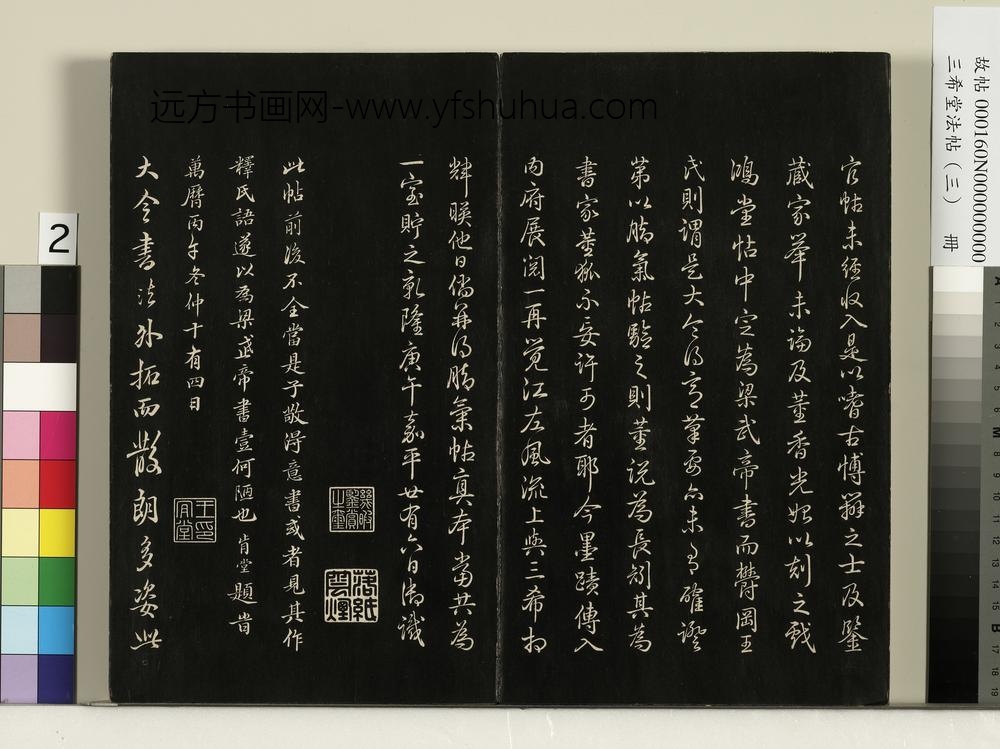 官帖未經收入是以嗜古博辨之士及鑒
藏家舉未論及董香光始以刻之戲
鴻堂帖中定為梁武帝書而鬱岡王
氏則謂是大令得意筆要亦未有確證
第以腊氣帖驗之則董說為長別其為
書家董狐不妄許可者耶今墨蹟傳入
內府展閱一再覺江左風流上與三希相
輝暎他日儻再得腊氣帖真本當共為
一室貯之乾隆庚午嘉平廿有六日御識
幾暇鑒賞之璽
落紙雲煙
此帖前後不全當是子敬得意書或者見其作
釋氏語遂以為梁武帝書壹何陋也肯堂題岢
萬曆丙午冬仲十有四日
王肯堂印
大令書法外拓而散朗多姿此
远方书画网-www.yfshuhua.com
故帖 000160N000000000
三希堂法帖（三） 冊
2